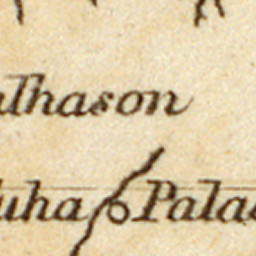 alhason
uha Pala